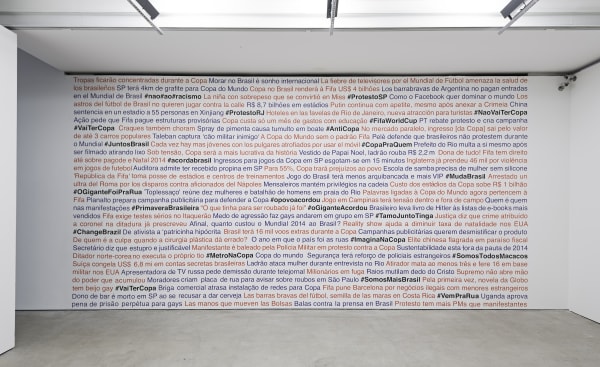 Tropas ficarão concentradas durante a Copa Morar no Brasil é sonho internacional La fiebre de televisores por el Mundial de Fútbol amenaza la salud de
los brasileños SP terá 4km de grafite para Copa do Mundo Copa no Brasil renderá à Fifa US$ 4 bilhões Los barrabravas de Argentina no pagan entradas
en el Mundial de Brasil #nao#ao#racismo La niña con sobrepeso que se convirtió en Miss #ProtestoSP Como o Facebook quer dominar o mundo Los
astros del fútbol de Brasil no quieren jugar contra la calle R$ 8,7 bilhões em estádios Putin continua com apetite, mesmo após anexar a Crimeia China
sentencia en un estadio a 55 personas en Xinjiang #ProtestoRJ Hoteles en las favelas de Río, nueva atracción para turistas #NaoVaiTerCopa
Ação pede que Fifa pague estruturas provisórias Copa custa só um mês de gastos com educação #FifaWorldCup PT rebate protesto e cria campanha
#VaiTerCopa Craques também choram Spray de pimenta causa tumulto em boate #AntiCopa No mercado paralelo, ingresso (da Copa) sai pelo valor
de até 3 carros populares Taleban captura 'cão militar inimigo' A Copa do Mundo sem o padrão Fifa Pelé defende que brasileiros não protestem durante
o Mundial #JuntosBrasil Cada vez hay mas jóvenes con los pulgares atrofiados por usar el móvil #CopaPraQuem Prefeito do Rio multa a si mesmo após
ser filmado atirando lixo Sob tensão, Copa será a mais lucrativa da história Vestido de Papai Noel, ladrão rouba R$ 2,2 m Dona de tudo! Fifa tem direito
até sobre pagode e Natal 2014 #acordabrasil Ingressos para jogos da Copa em SP esgotam-se em 15 minutos Inglaterra já prendeu 46 mil por violência
em jogos de futebol Auditora admite ter recebido propina em SP Para 55%, Copa trará prejuízos ao povo Escola de samba precisa de mulher sem silicone
'República da Fifa' toma posse de estádios e centros de treinamentos Jogo do Brasil terá menos arquibancada e mais VIP #MudaBrasil Arrestado un
ultra del Roma por los disparos contra aficionados del Nápoles Mensaleiros mantêm privilégios na cadeia Custo dos estádios da Copa sobe R$ 1 bilhão
#OGiganteFoiPraRua 'Toplessaço' reúne dez mulheres e batalhão de homens em praia do Rio Palavras ligadas à Copa do Mundo agora pertencem à
Fifa Planalto prepara campanha publicitária para defender a Copa #opovoacordou Jogo em Campinas terá tensão dentro e fora de campo Quem é quem
nas manifestações #PrimaveraBrasileira "O que tinha para ser roubado já foi" #oGiganteAcordou Brasileiro leva livro de Hitler às listas de e-books mais
vendidos Fifa exige testes sérios no Itaquerão Medo de agressão faz gays andarem em grupo em SP #TamoJuntoTinga Justiça diz que crime atribuído
a coronel na ditadura já prescreveu Afinal, quanto custou o Mundial 2014 ao Brasil? Reality show ajuda a diminuir taxa de natalidade nos EUA
#ChangeBrazil De ativista a patricinha hipócrita Brasil terá 16 mil voos extras durante a Copa Campanhas publicitárias querem desmistificar o produto
De quem é a culpa quando a cirurgia plástica dá errado? O ano em que o país foi as ruas #ImaginaNaCopa Elite chinesa flagrada em paraíso fiscal
Secretário diz que estupro é justificável Manifestante é baleado pela Polícia Militar em protesto contra a Copa Sustentabilidade esta fora da pauta de 2014
Ditador norte-coreano executa o próprio tio #MetroNaCopa Copa do mundo Segurança terá reforço de policiais estrangeiros #SomosTodosMacacos
Suíça congela US$ 6,8 mi em contas secretas brasileiras Ladrão ataca mulher durante entrevista no Rio Atirador mata ao menos três e fere 16 em base
militar nos EUA Apresentadora de TV russa pede demissão durante telejornal Milionários em fuga Raios mutilam dedo do Cristo Supremo não abre mão
do poder que acumulou Moradores criam placa de rua para avisar sobre roubos em São Paulo #SomosMaisBrasil Pela primeira vez, novela da Globo
tem beijo gay #VaiTerCopa Briga comercial atrasa instalação de redes para Copa Fifa pune Barcelona por negócios ilegais com menores estrangeiros
Dono de bar é morto em SP ao se recusar a dar cerveja Las barras bravas del fútbol, semilla de las maras en Costa Rica #VemPraRua Uganda aprova
pena de prisão perpétua para gays Las manos que mueven las Bolsas Balas contra la prensa en Brasil Protesto tem mais PMs que manifestantes